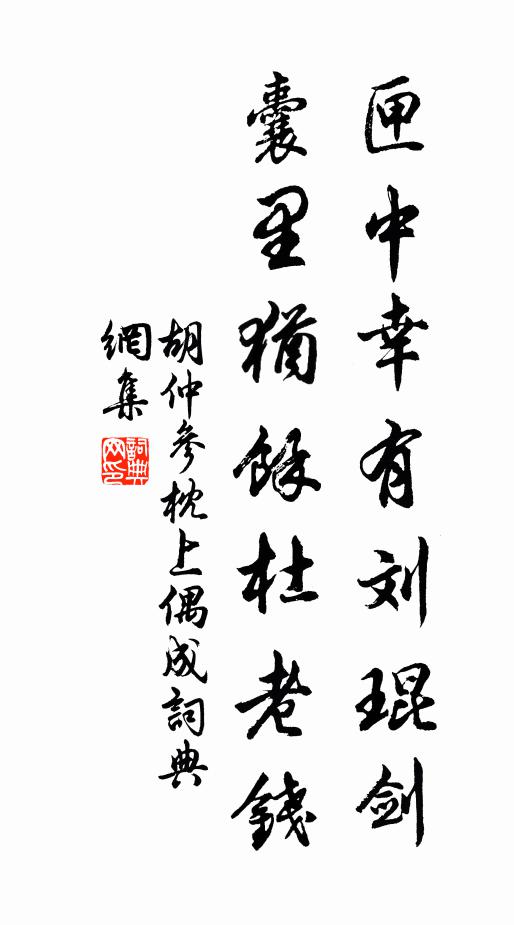 匣中幸有刘琨剑
囊里犹餘杜老錢
胡仲参枕上偶成詞典
網集
詞典網印